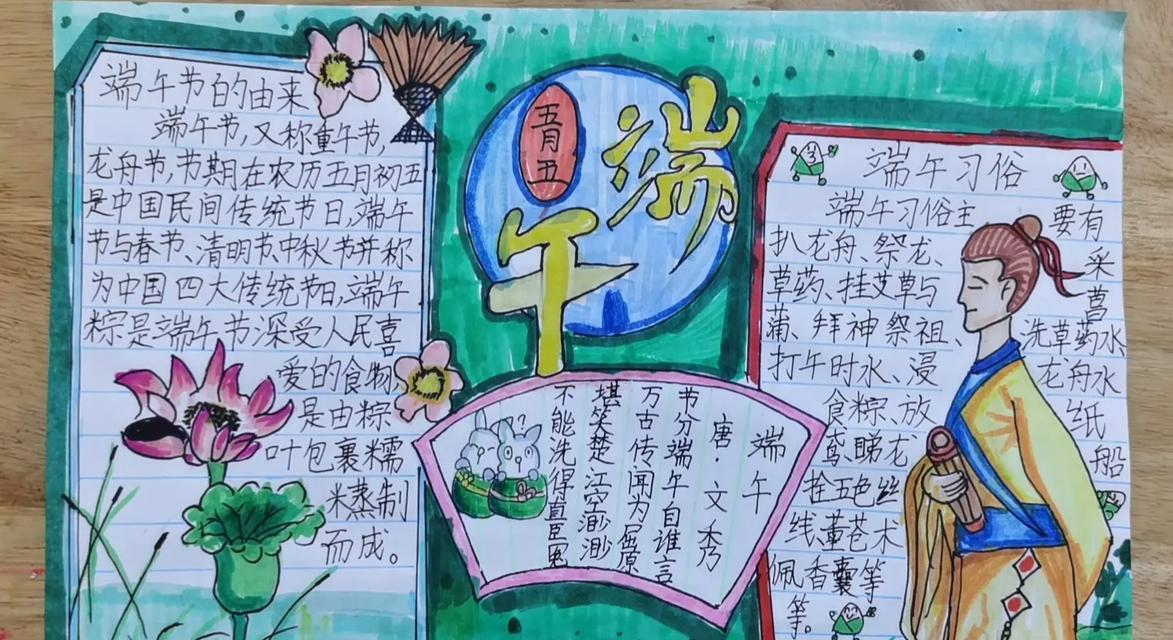 端午节的由来
端午节,又称重午节,
龙舟节,节期在农历五月初五
是中国民间传统节日,端午
节与春节、清明节、中秋节并称
为中国四大传统节日,端午
粽是端午节深受人民喜
爱的食物,
是由粽
叶包裹糯
米蒸制
而成。
五月五
端
午
端午
唐·文秀
节分端午自谁言
万古传闻为屈原
堪笑楚江空渺渺
不能洗得直臣冤
端午习俗
端午习俗主要有
扒龙舟、祭龙、采
草药、挂艾草与菖
蒲、拜神祭祖、洗草药水
打午时水、浸龙舟水
食粽、放纸
鸢、睇龙船
拴五色丝
线、薰苍术
佩香囊等
等。